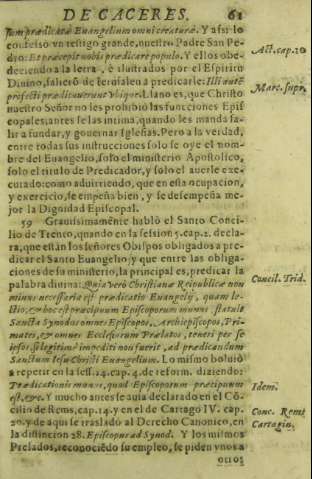 DE CACERES. 61
dum prædicate Euangelium omni creaturæ. Y assi lo
confesso vn testigo grande, nuestro Padre San Pe-
dro: Et præcepit nobis prædicare populo. Y ellos obe-
deciendo a la letra, è ilustrados por el Espiritu
Diuino, saliero de Ierusalen a predicarle: Illi autē
profecti prædicauerunt vbique. Llano es, que Christo
nuestro Señor no les prohibiò las funciones Epis
copales, antes se las intima, quando les manda sa-
lir a fundar, y gouernar Iglesias. Pero a la verdad,
entre todas sus instrucciones solo se oye el nom-
bre del Euangelio, solo el ministerio Apostolico,
solo el titulo de Predicador, y solo el auerle exe-
cutado: como aduirtiendo, que en esta ocupacion,
y exercicio, se empeña bien, y se desempeña me-
jor la Dignidad Episcopal.
59 Grauissimamēte hablò el Santo Conci-
lio de Trento, quando en la session 5. cap. 2. decla-
ra, que estàn los señores Obispos obligados a pre-
dicar el Santo Euangelio; y que entre las obliga-
ciones de su ministerio, la principal es, predicar la
palabra diuina: Quia verò Christianæ Reipublicæ non
minus necessaria est prædicatio Euangelij, quam le-
ctio; & hoc est præcipuum Episcoporum munus: statuit
Sancta Synodus omnes Episcopos, Archiepiscopos, Pri-
mates, & omnes Ecclesiarum Prælatos, teneri per se
ipsos, si legitimè impediti non fuerit, ad prædicandum
Sanctum Iesu Christi Euangelium. Lo mismo boluiò
a repetir en la sess. 24. cap. 4. de reform. diziendo:
Prædicationis munus, quod Episcoporum præcipuum
est, &c. Y mucho antes se auia declarado en el Cō-
cilio de Rems, cap. 14. y en el de Cartago IV. cap.
20. y de aqui se trasladò al Derecho Canonico, en
la distincion 28. Episcopus ad Synod. Y los mismos
Prelados, reconociēdo su empleo, se piden vnos a
otros
Act. cap. 10
Marc. supr.
Concil. Trid.
Idem.
Conc. Rems
Cartagin.